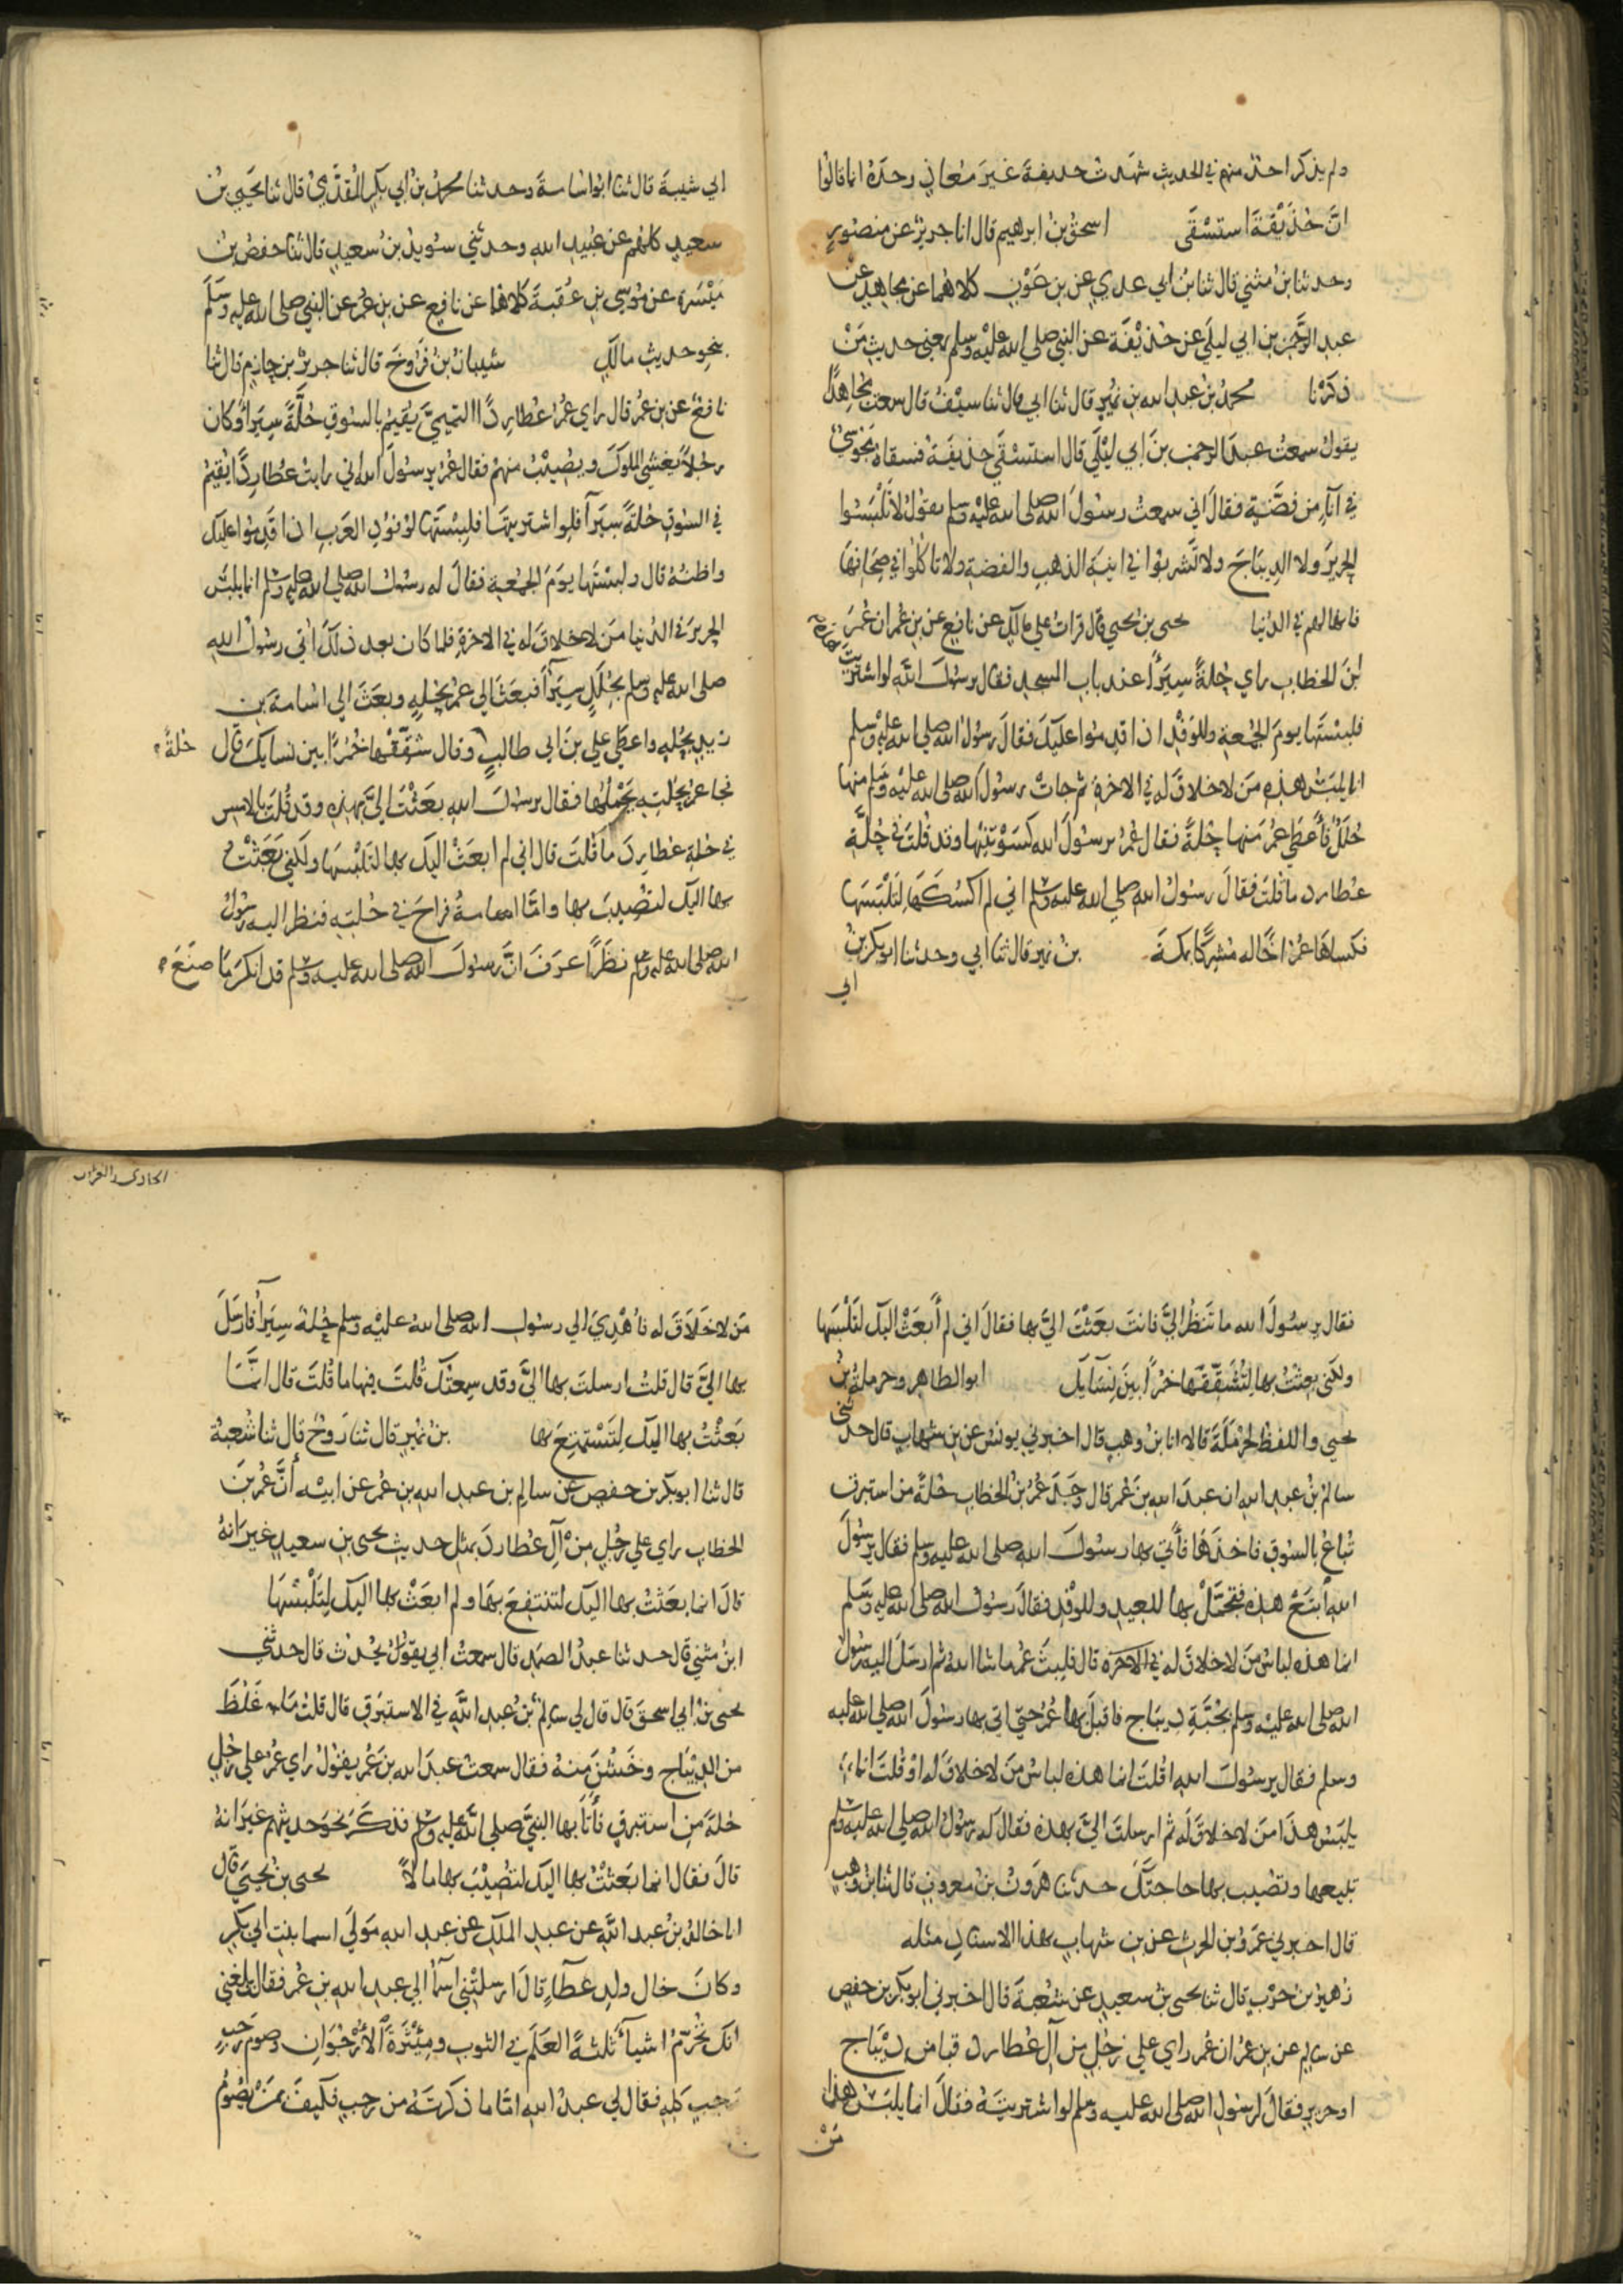 ولم يذكر احد منهم في الحديث شهدت حذيفة غير معاذ وحده انما قالوا
ان حذيفة استسقى اسحق بن ابرهيم قال انا جرير عن منصور
وحدثنا بن مثني قال ثنا بن ابي عدي عن بن عون كلاهما عن مجاهد عن
عبد الرحمن بن ابي ليلي عن حذيفة عن النبي صلى الله عليه وسلم بمعني حديث من
ذكرنا محمد بن عبد الله بن نمير قال ثنا ابي قال ثنا سيف قال سمعت مجاهدا
يقول سمعت عبد الرحمن بن ابي ليلي قال استسقي حذيفة فسقاه مجوسي
في اناء من فضة فقال اني سمعت رسول الله صلى الله عليه وسلم يقول لا تلبسوا
الحرير ولا الديباج ولا تشربوا في انية الذهب والفضة ولا تاكلوا في صحافها
فانها لهم في الدنيا يحيى بن يحيى قال قرات علي مالك عن نافع عن بن عمر ان عمر
ابن الخطاب راي حلة سيرا عند باب المسجد فقال يرسول الله لو اشتريت هذه
فلبستها يوم الجمعة وللوفد اذا قدموا عليك فقال رسول الله صلى الله عليه وسلم
انما يلبس هذه من لا خلاق له في الاخرة ثم جات رسول الله صلى الله عليه وسلم منها
حلل فأعطي عمر منها حلة فقال عمر يرسول الله كسوتنيها وقد قلت في حلة
عطارد ما قلت فقال رسول الله صلي الله عليه وسلم اني لم اكسكها لتلبسها
فكساها عمر اخا له مشركا بمكة بن نمير قال ثنا ابي وحدثنا ابو بكر بن
ابي
ابي شيبة قال ثنا ابو اسامة وحدثنا محمد بن ابي بكر المقدمي قال ثنا يحيي بن
سعيد كلهم عن عبيد الله وحدثني سويد بن سعيد قال ثنا حفص بن
ميسرة عن موسي بن عقبة كلاهما عن نافع عن بن عمر عن النبي صلى الله عليه وسلم
بنحو حديث مالك شيبان بن فروخ قال ثنا جرير بن حازم قال ثنا
نافع عن بن عمر قال راي عمر عطاردا التميمي يقيم بالسوق حلة سيرا وكان
رجلا يغشي الملوك ويصيب منهم فقال عمر يرسول الله اني رايت عطاردا يقيم
في السوق حلة سيرا فلو اشتريتها فلبستها لوفود العرب اذا قدموا عليك
واظنه قال ولبستها يوم الجمعة فقال له رسول الله صلى الله عليه وسلم انما يلبس
الحرير في الدنيا من لا خلاق له في الاخرة فلما كان بعد ذلك اتي رسول الله
صلى الله عليه وسلم بحلل سيرا فبعث الي عمر بحلة وبعث الي اسامة بن
زيد بحلة واعطي علي بن ابي طالب وقال شققها خمرا بين نسايك قال حلة
فجا عمر بحلته يحملها فقال يرسول الله بعثت الي بهذه وقد قلت بالامس
في حلة عطارد ما قلت قال اني لم ابعث اليك بها لتلبسها ولكني بعثت
بها اليك لتصيب بها واما اسامة فراح في حلته فنظر اليه رسول
الله صلى الله عليه وسلم نظرا عرف ان رسول الله صلى الله عليه وسلم قد انكر ما صنع
فقال يرسول الله ما تنظر الي فانت بعثت الي بها فقال اني لم أبعث اليك لتلبسها
ولكني بعثت بها لتشققها خمرا بين نسايك ابو الطاهر وحرملة بن
يحيي واللفظ لحرملة قالا انا بن وهب قال اخبرني يونس عن بن شهاب قال حدثني
سالم بن عبد الله ان عبد الله بن عمر قال وجد عمر بن الخطاب حلة من استبرق
تباع بالسوق فاخذها فأتي بها رسول الله صلى الله عليه وسلم فقال يرسول
الله ابتع هذه فتجمل بها للعيد وللوفد فقال رسول الله صلى الله عليه وسلم
انما هذه لباس من لا خلاق له في الاخرة قال فلبث عمر ما شا الله ثم ارسل اليه رسول
الله صلى الله عليه وسلم بجبة ديباج فاقبل بها عمر حتي اتي بها رسول الله صلي الله عليه
وسلم فقال يرسول الله قلت انما هذه لباس من لا خلاق له او قلت انما
يلبس هذا من لا خلاق له ثم ارسلت الي بهذه فقال له رسول الله صلي الله عليه وسلم
تبيعها وتصيب بها حاجتك حدثنا هرون بن معروف قال ثنا بن وهب
قال اخبرني عمرو بن الحرث عن بن شهاب بهذا الاسناد مثله
زهير بن حرب قال ثنا يحيى بن سعيد عن شعبة قال اخبرني ابو بكر بن حفص
عن سالم عن بن عمر ان عمر راي علي رجل من آل عطارد قبا من ديباج
او حرير فقال لرسول الله صلى الله عليه وسلم لو اشتريته فقال انما يلبس هذا
من
الحادى والعشرون
من لا خلاق له فأهدي الي رسول الله صلى الله عليه وسلم حلة سيرا فارسل
بها الي قال قلت ارسلت بها الي وقد سمعتك قلت فيها ما قلت قال انما
بعثت بها اليك لتستمتع بها بن نمير قال ثنا روح قال ثنا شعبة
قال ثنا ابو بكر بن حفص عن سالم بن عبد الله بن عمر عن ابيه أن عمر بن
الخطاب راي علي رجل من آل عطارد بمثل حديث يحيى بن سعيد غير انه
قال انما بعثت بها اليك لتنتفع بها ولم ابعث بها اليك لتلبسها
ابن مثني قال حدثنا عبد الصمد قال سمعت ابي يقول يحدث قال حدثني
يحيى بن ابي اسحق قال قال لي سالم بن عبد الله في الاستبرق قال قلت ما غلظ
من الديباج وخشن منه فقال سمعت عبد الله بن عمر يقول راي عمر علي رجل
حلة من استبرق فأتا بها النبي صلى الله عليه وسلم فذكر نحو حديثهم غير انه
قال فقال انما بعثت بها اليك لتصيب بها مالا يحيى بن يحيي قال
انا خالد بن عبد الله عن عبد الملك عن عبد الله مولي اسما بنت ابي بكر
وكان خال ولد عطاء قال ارسلتني اسما الي عبد الله بن عمر فقالت بلغني
انك تحرم اشيا ثلثة العلم في الثوب وميثرة الأرجوان وصوم رجب
كله فقال لي عبد الله اما ما ذكرت من رجب فكيف بمن يصوم